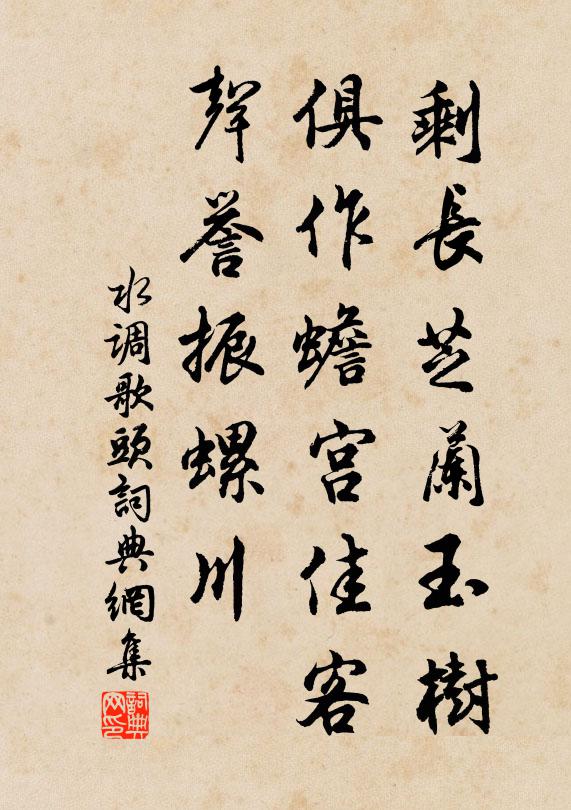 剩長芝蘭玉樹
俱作蟾宮佳客
聲譽振螺川
水調歌頭詞典網集
詞典网印